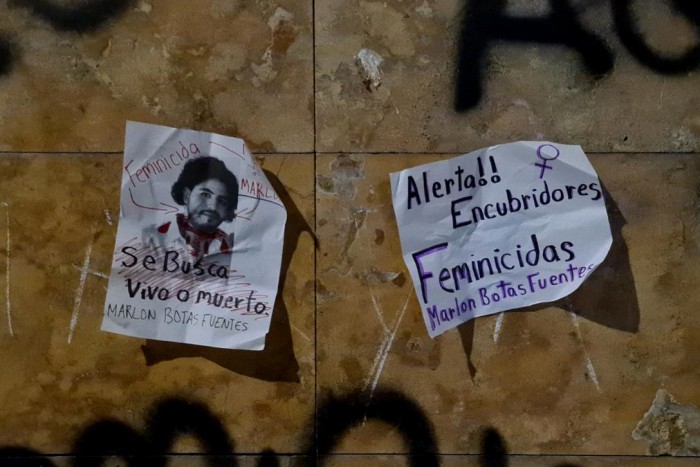 Feminicida
MARL
Se Busca
Vivo o muerto.
MARLON BOTAS FUENTES
Alerta!!
Encubridores
Feminicidas
Marlon Botas Fuentes